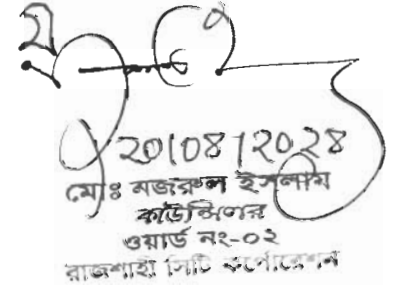 20/08/2028
মোঃ নজরুল ইসলাম
কাউন্সিলর
ওয়ার্ড নং-০২
রাজশাহী সিটি কর্পোরেশন